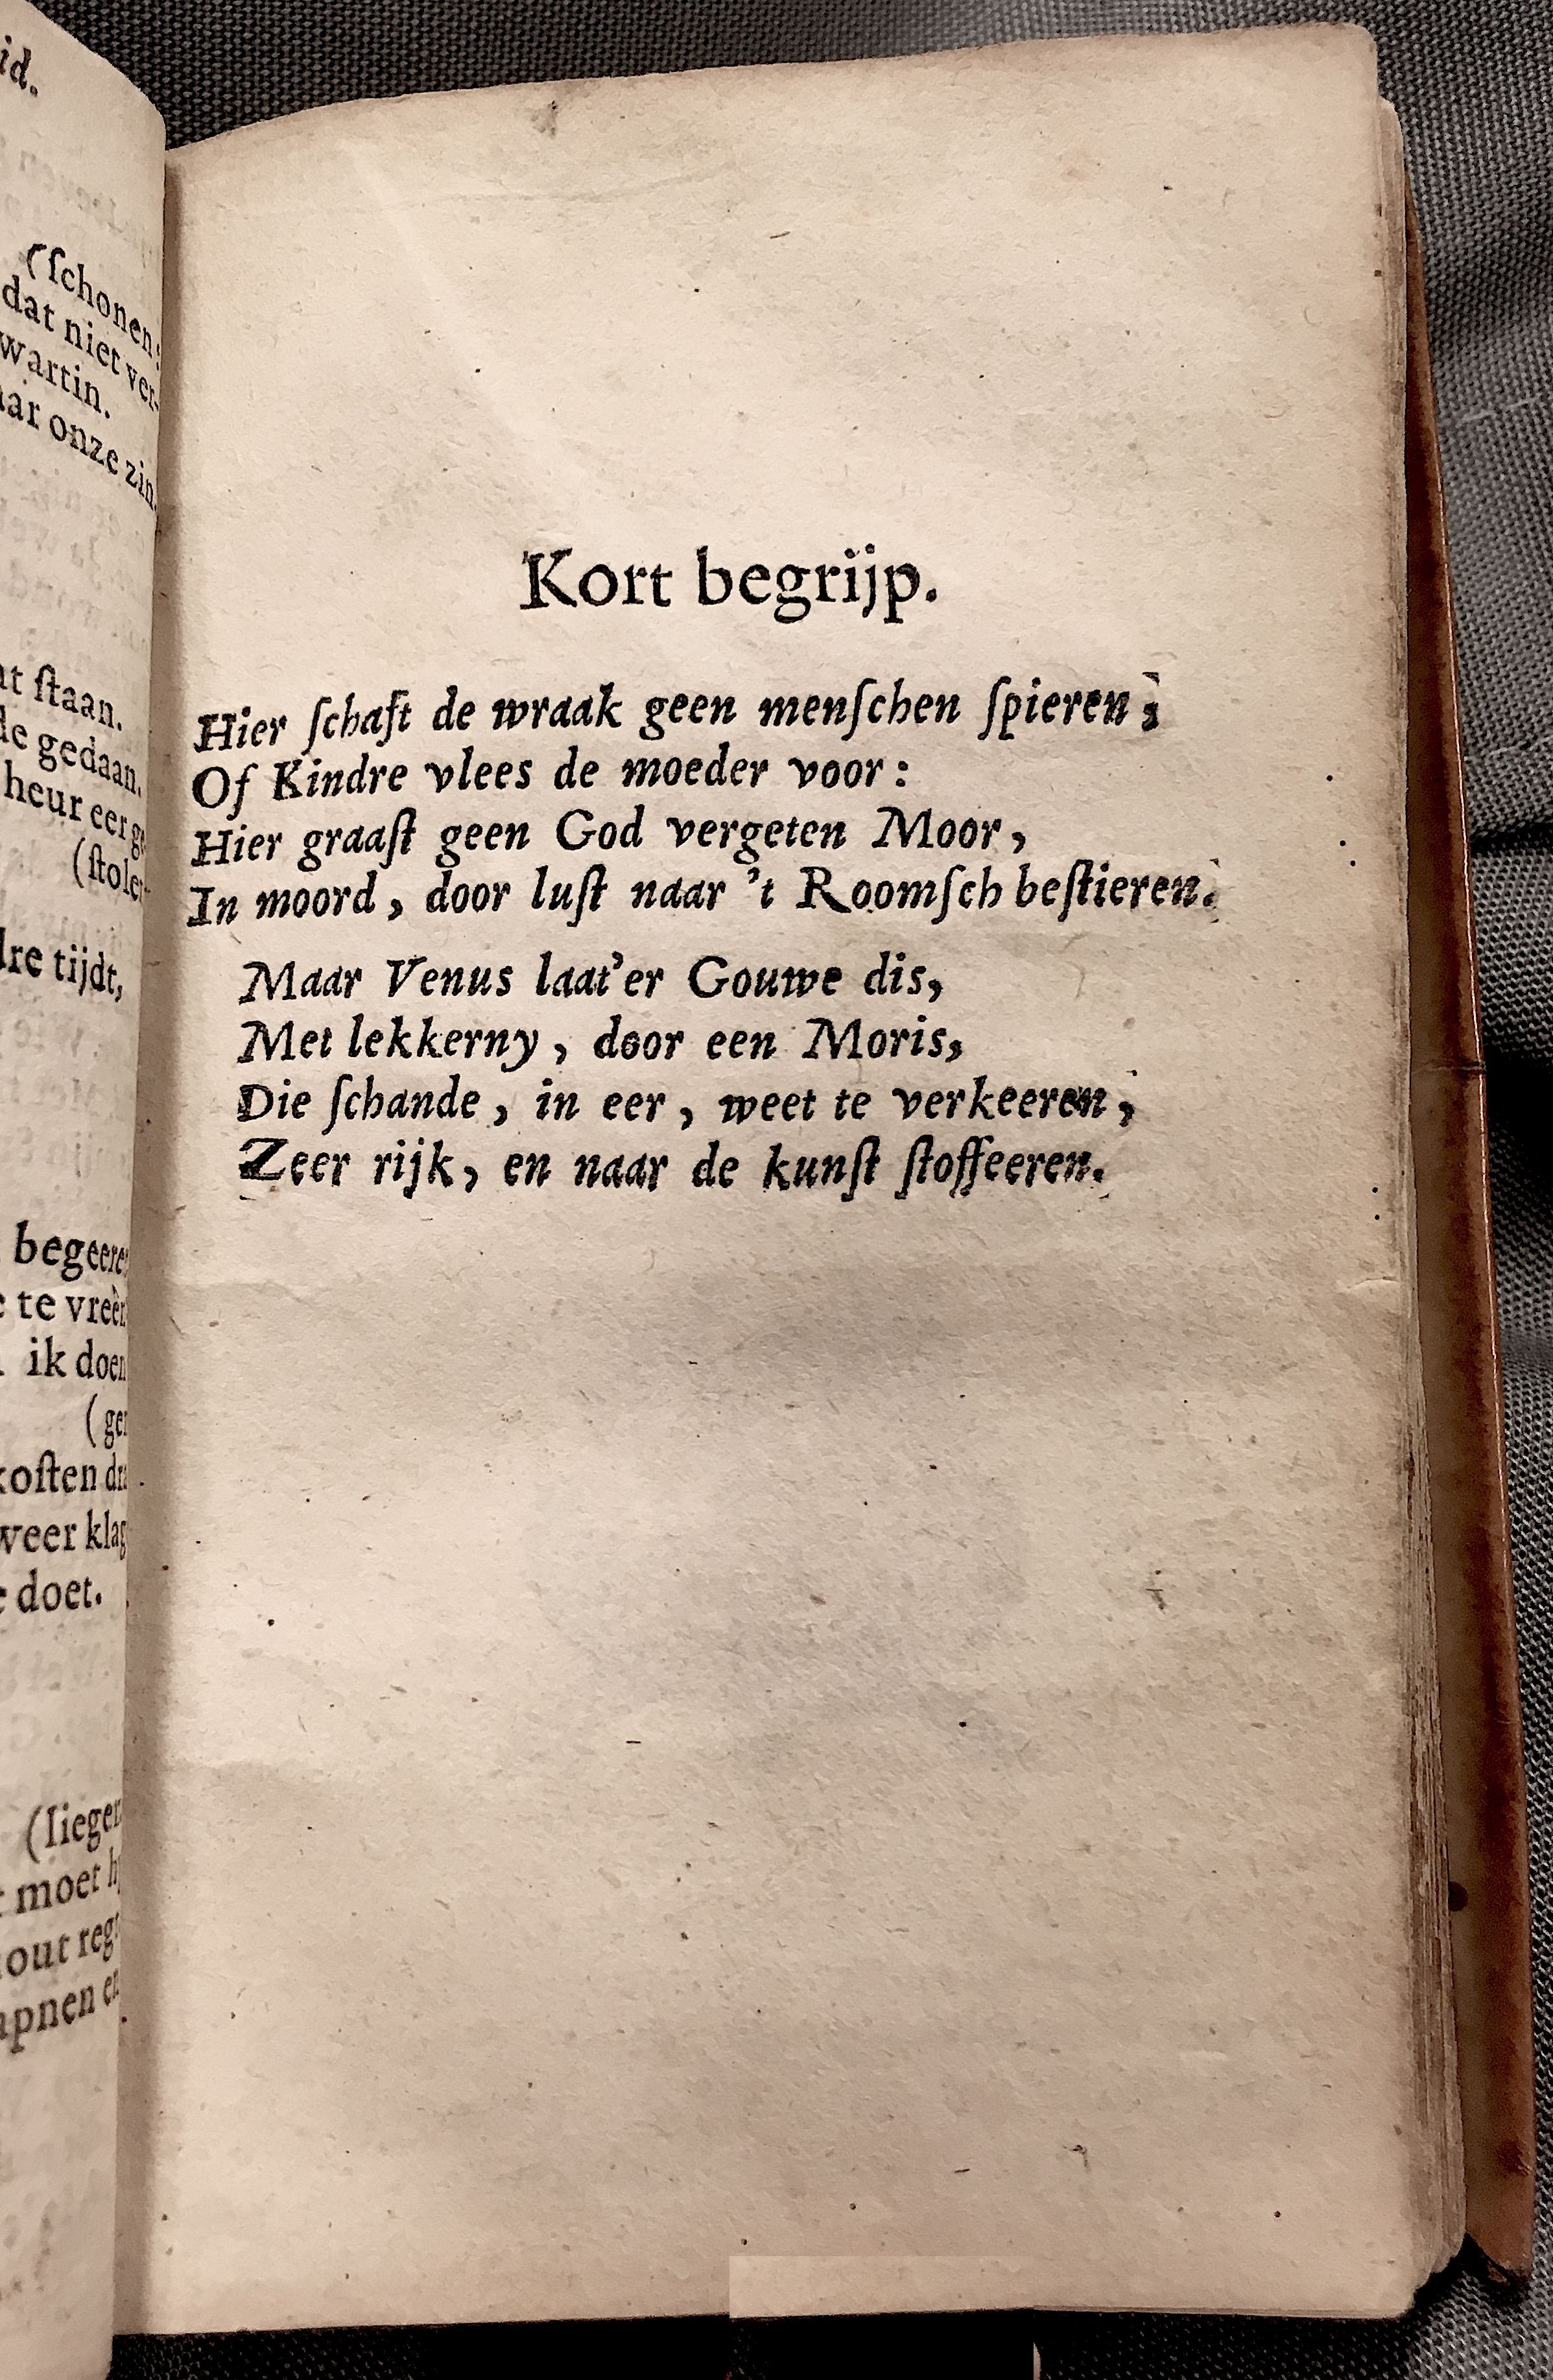 id.
(ſchonen:
dat niet ver-
wartin.
aar onze zin.
ſtaan.
gedaan.
heur eer
(ſtolen
tijdt,
begeere
te vree
ik doen
koſten
weer klag
doet.
moet
Kort begrijp.
Hier ſchaft de wraak geen menſchen ſpieren;
Of Kindre vlees de moeder voor:
Hier graaſt geen God vergeten Moor,
In moord, door luſt naar 't Roomſch beſtieren.
Maar Venus laat'er Gouwe dis,
Met lekkerny, door een Moris,
Die ſchande, in eer, weet te verkeeren,
Zeer rijk, en naar de kunſt ſtoffeeren.